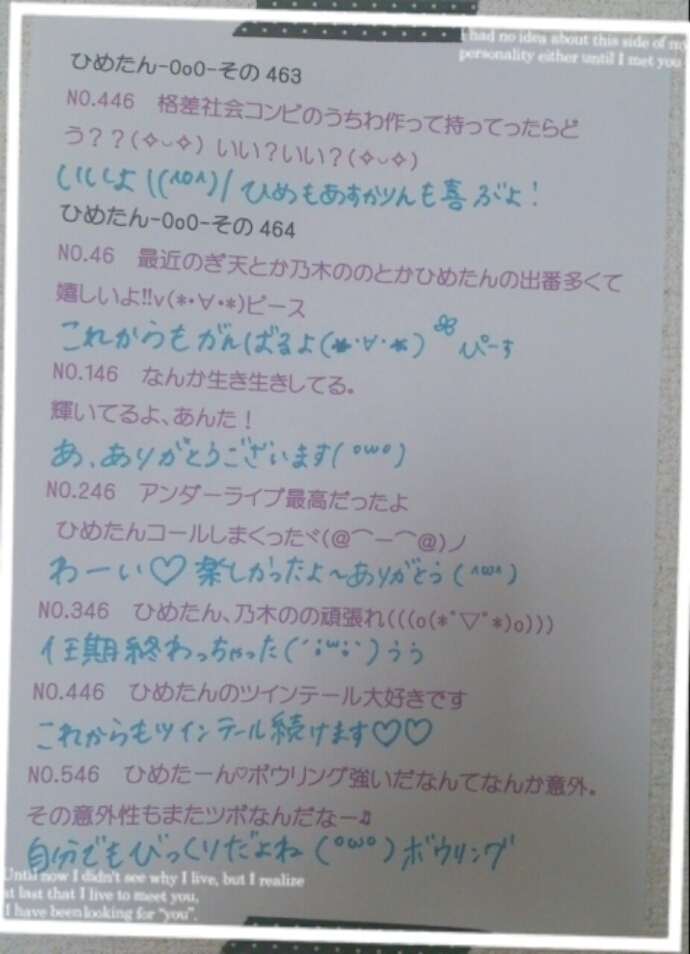 I had no idea about this side of my
personality either until I met you
ひめたん-OoO-その463
NO.446　格差社会コンビのうちわ作って持ってったらど
う？？(✧⌣✧) いい？いい？(✧⌣✧)
いいよ\((^o^)/ ひめもあすかりんも喜ぶよ！
ひめたん-OoO-その464
NO.46　最近のぎ天とか乃木ののとかひめたんの出番多くて
嬉しいよ!!v(*･∀･*)ピース
これからもがんばるよ(*･∀･*) ぴーす
NO.146　なんか生き生きしてる。
輝いてるよ、あんた！
あ、ありがとうございます(°ω°)
NO.246　アンダーライブ最高だったよ
ひめたんコールしまくったヾ(@⌒ー⌒@)ノ
わーい♡楽しかったよ〜ありがとう(^ω^)
NO.346　ひめたん、乃木のの頑張れ(((o(*ﾟ▽ﾟ*)o)))
任期終わっちゃった(´;ω;`)うぅ
NO.446　ひめたんのツインテール大好きです
これからもツインテール続けます♡♡
NO.546　ひめたーん♡ボウリング強いだなんてなんか意外。
その意外性もまたツボなんだなー♫
自分でもびっくりだよね(°ω°)ボウリング
Until now I didn't see why I live, but I realize
at last that I live to meet you,
I have been looking for "you".